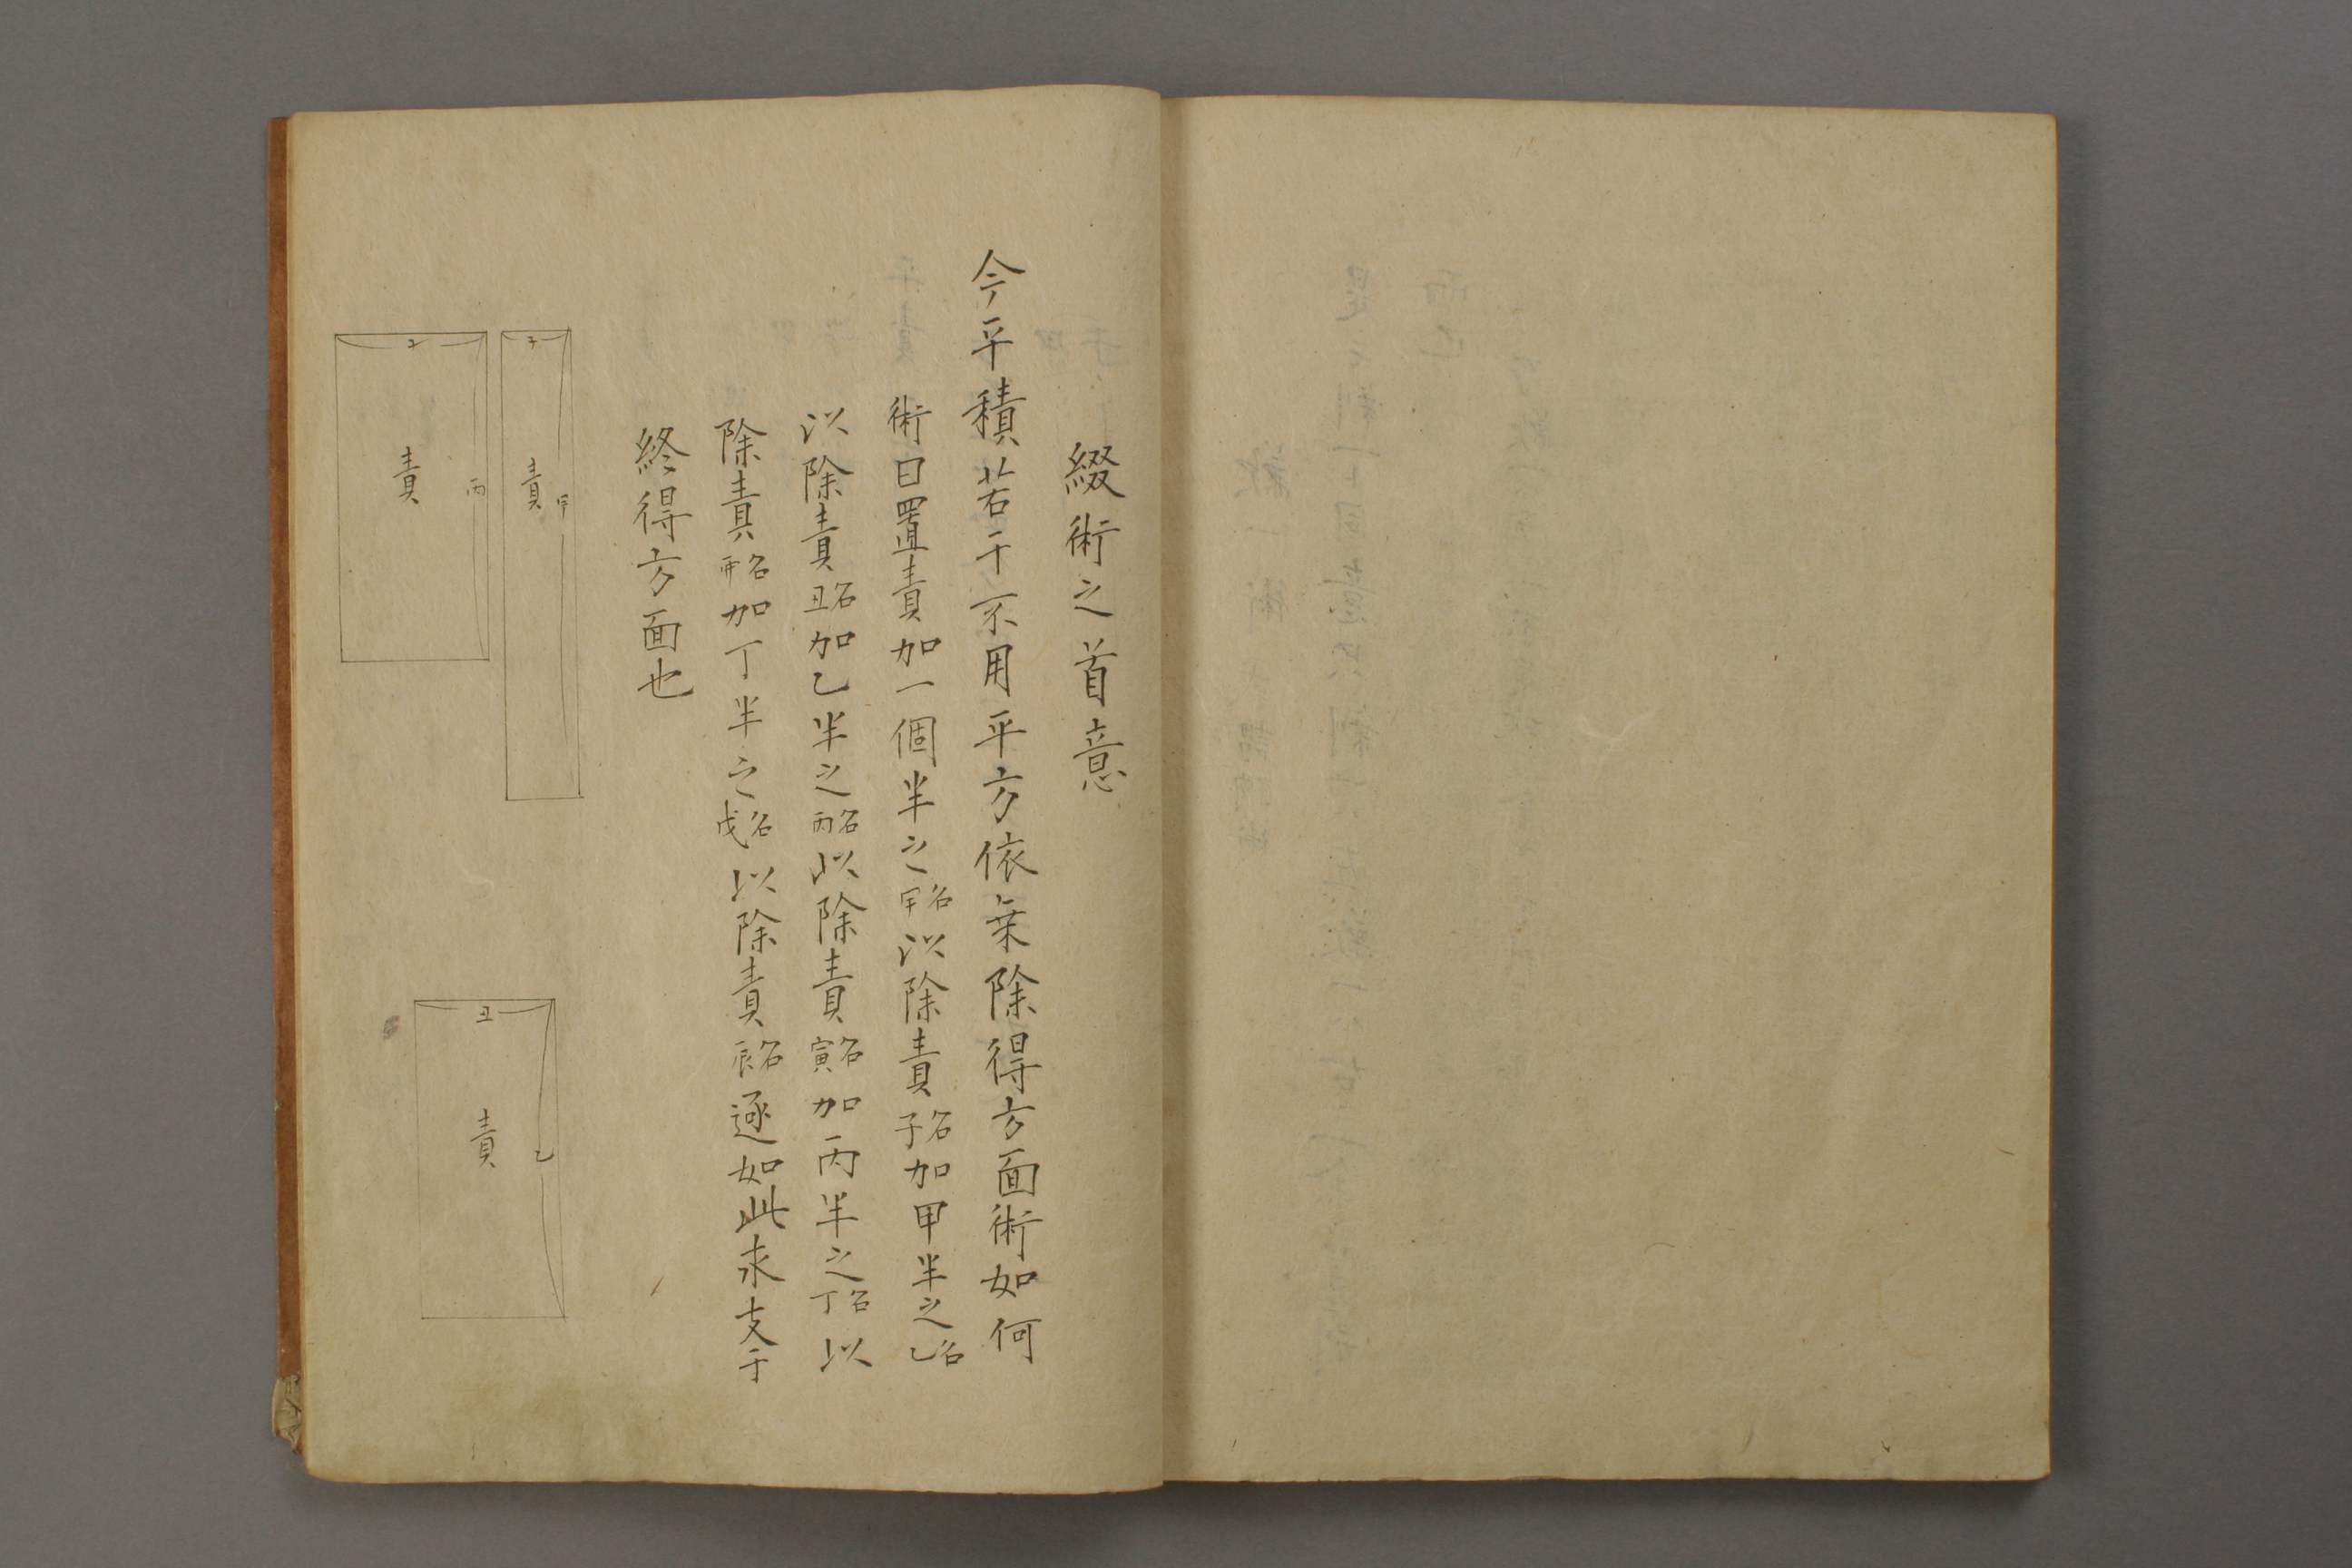 綴術之首意
今平積若干不用平方依乗除得方面術如何
術曰置責加一個半之名甲以除責名子加甲半之名乙
以除責名丑加乙半之名丙以除責名寅加丙半之名丁以
除責名卯加丁半之名戊以除責名辰逐如此求支干
終得方面也
子
責
甲
責
丙
丑
責
乙